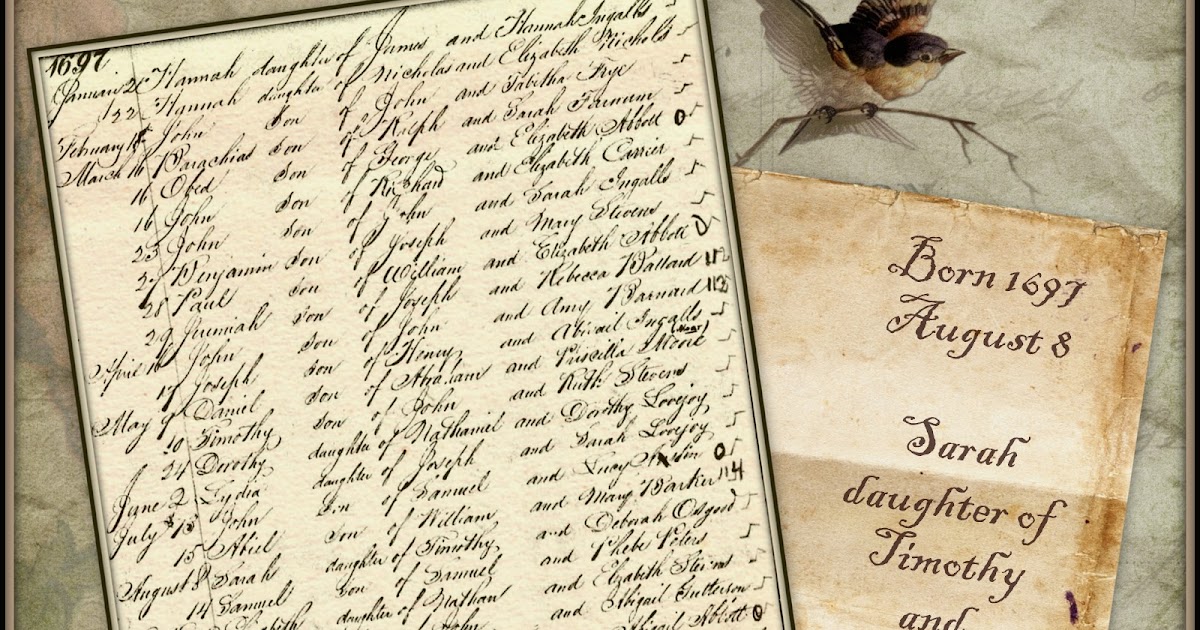 1697
Januari Hannah daughter of James and Hannah Ingalls
Hannah daughter of Nicholas and Elizabeth Nichols
February John son of John and Tabitha Frye
March 16 Barachias son of Ralph and Sarah Farnum
16 Obed son of George and Elizabeth Abbott 0
16 John son of Richard and Elizabeth Carrier
23 John son of John and Sarah Ingalls
27 Benjamin son of Joseph and Mary Stevens
28 Paul son of William and Elizabeth Abbott
29 Jeremiah son of Joseph and Rebecca Ballard 112
Aprie 16 John son of John and Amy Barnard 112
17 Joseph son of Henry and Abigail Ingalls
May 9 Daniel son of Abraham and Priscilla Moore
10 Timothy son of John and Ruth Stevens
24 Dorothy daughter of Nathaniel and Dorothy Lovejoy
June 2 Lydia daughter of Joseph and Sarah Lovejoy
July John son of Samuel and Lucy 0
15 Abiel son of William and Mary Barker 114
August 8 Sarah daughter of Timothy and Deborah Osgood
14 Samuel son of Samuel and Phebe Peters
Elizabeth daughter of Nathan and Elizabeth Stevens
John and Abigail Gutterson
Abigail Abbott 0
Born 1697
August 8
Sarah
daughter of
Timothy
and